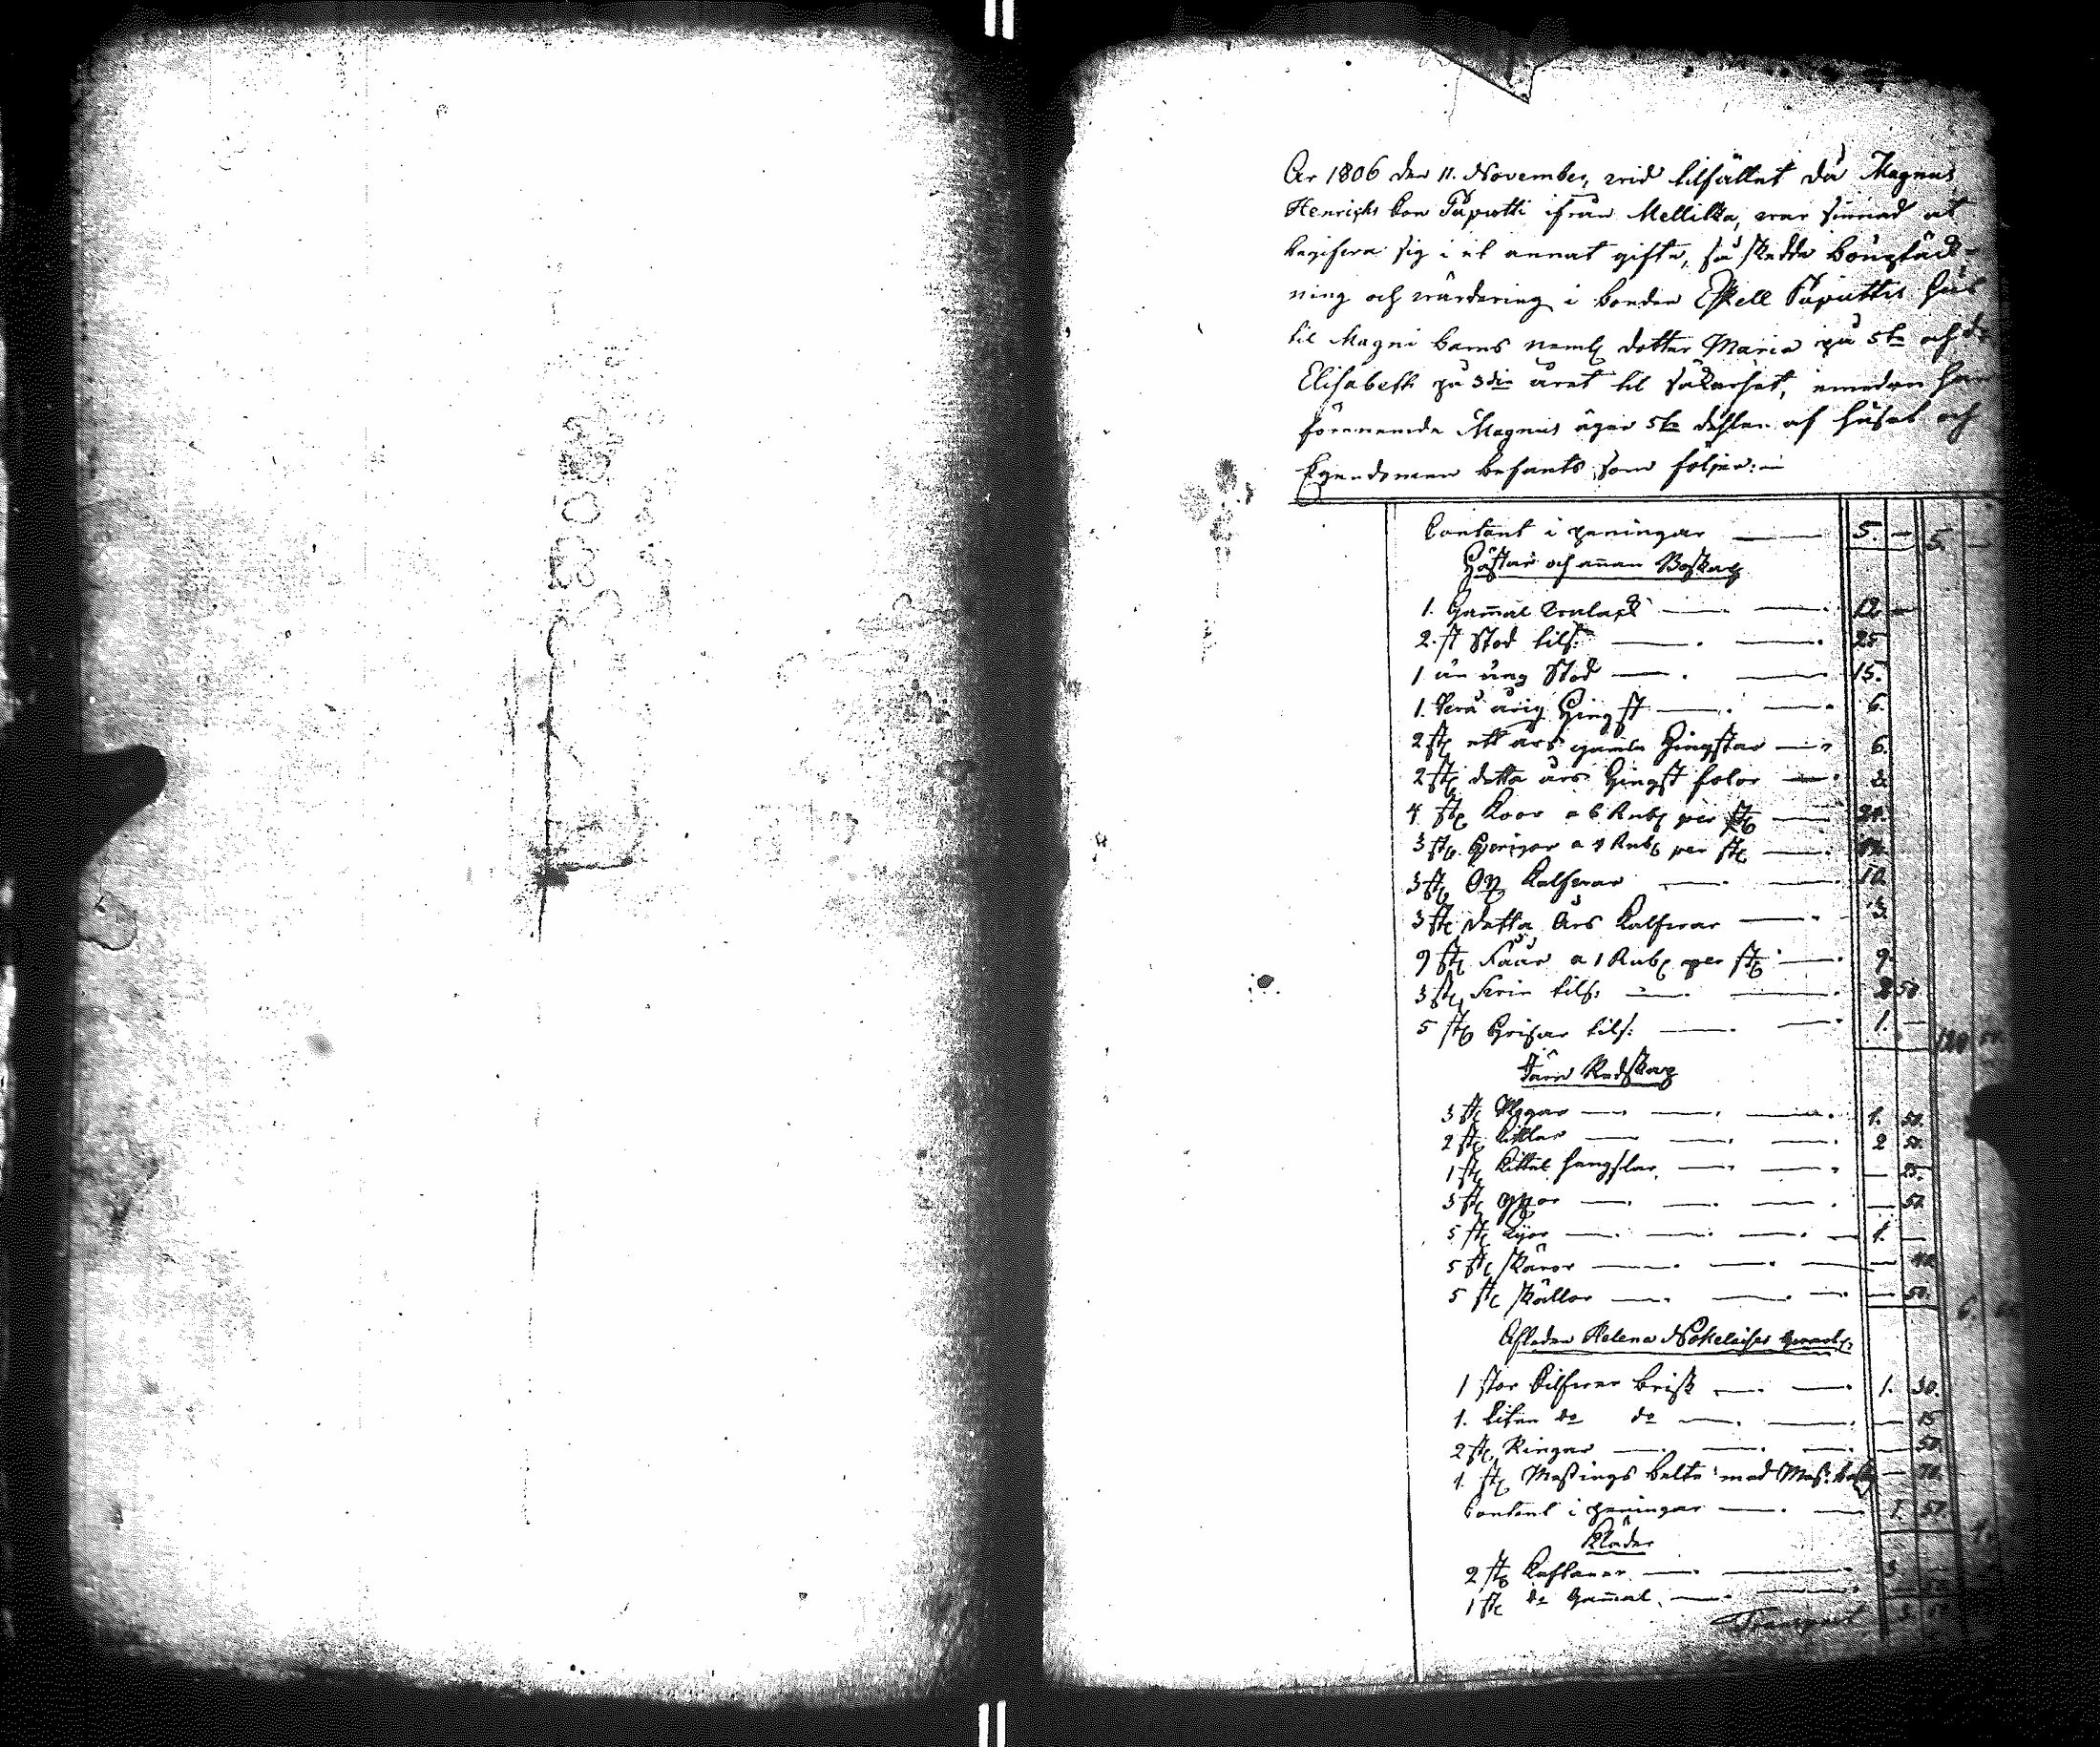 År 1806 den 11. November, wid tilfället då Magnus
Henrichs son Päpatti ifrån Mellikka, war sinnad at
begifwa sig i et annat gifte, så skedde bouptäck-
ning och wärdering i bonden Eskell Päpattis hus
til Magni barns neml. dotter Maria på 5te och do
Elisabeth på 3die året til säkerhet, emedan han
förenemde Magnus äger 5te dehlen af huset och
Egendomen befants som följer:
Contant i peningar 5. — 5. —
Hästar och annan Boskap
1. Gammal walack 12. —
2. st Stod tils: 25
1 en ung Stod 15.
1. twå årig Hingst 6.
2 st. ett års gamla Hingstar 6.
2 st. detta års Hingst folor 2.
4 st. Koor a 6 Rub. per st.
3 st. Qvigor a 4 Rub. per st.
3 st. Ox Kalfwar 10
3 st. detta Års Kalfwar 3.
9 st. Fåår a 1 Rub. per st. 9.
3 st. Swin tils: 2 50
5 st. Grisar tils: 1. —
Järn Redskap
3 st. Yxar 1. 50.
2 st. Kittlar 2 50.
1 st. Kittel hangslar — 25.
3 st. — 50.
5 st. Lijor 1. —
5 st. skäror —
5 st. skällor — 50.
Afledne Helena
1 stor Silfwer brisk 1. 30.
1. liten do do — 15
2 st. Ringar — 50.
1. st. Mässings belte med Mäs: — 70.
Contant i peningar 1. 50.
Kläder
2 st. Kaftaner 3
1 st. do Gammal
Transport